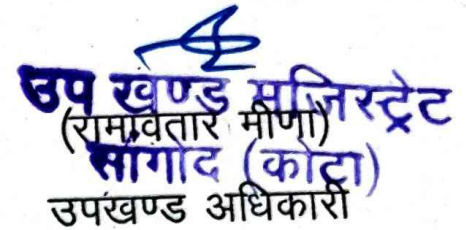 उप खण्ड मजिस्ट्रेट
(रामावतार मीणा)
सांगोद (कोटा)
उपखण्ड अधिकारी